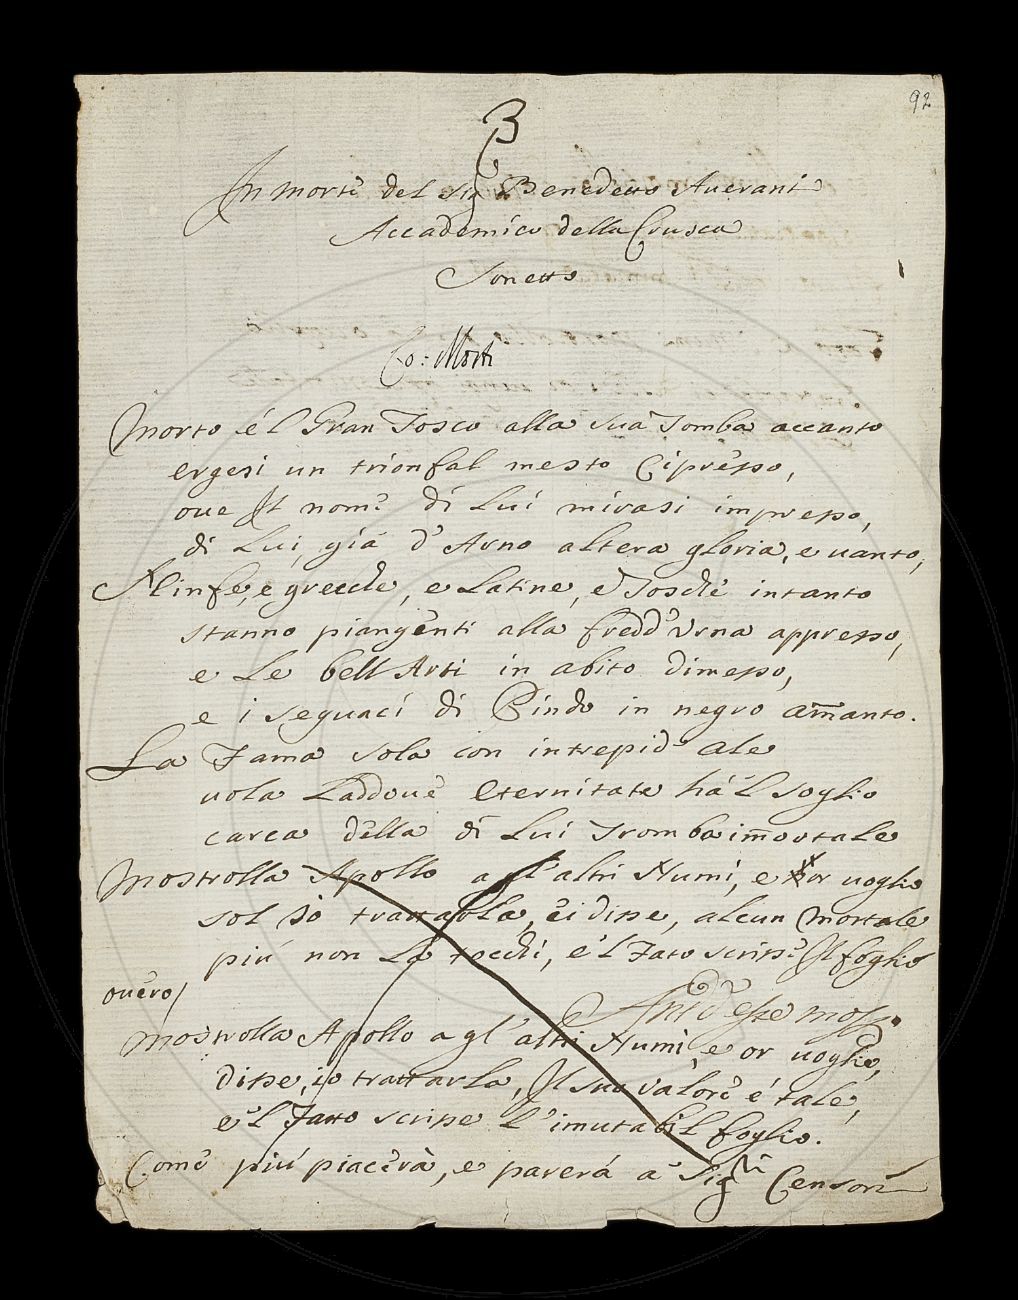 92
B
In morte del Sig Benedetto Auerani
Accademico della Crusca
Sonetto
Co: Morti
Morto é'l Gran Tosco alla sua Tomba accanto
ergesi un trionfal mesto Cipresso,
oue Il nome di Lui mirasi impresso,
di Lui, giá d'Arno altera gloria, e uanto,
Ninfe, e greche, e Latine, e Tosche intanto
stanno piangenti alla fredd'Urna appresso,
e Le bell'Arti in abito dimesso,
e i seguaci di Pindo in negro am̄anto.
La Fama sola con intrepid' ale
uola Laddoue Eternitate há'L soglio
carca della di Lui Tromba im̄ortale
Mostrolla Apollo a gl'altri Numi, e or uoglio
sol io trattarla, ei disse, alcun Mortale
piú non La tocchi, e'l Fato scrisse Il foglio
ouero/
Mostrolla Apollo a gl'altri Numi, e or uoglio,
disse, io trattarla, Il suo valore é tale,
e'l Fatto scrisse L'imutabil foglio.
Come piú piacerà, e parerá a' Sigri Censori